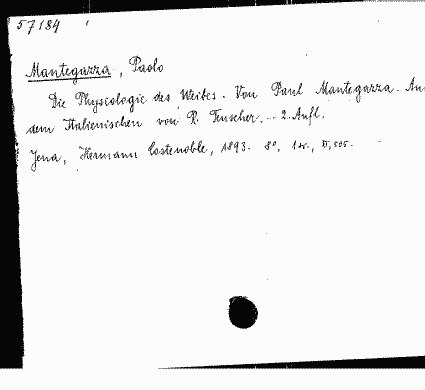 57184
Mantegazza, Paolo
Die Physiologie des Weibes. Von Paul Mantegazza. Aus
dem Italienischen von R. Teuscher. - 2. Aufl.
Jena, Hermann Costenoble, 1893. 8°, 505.